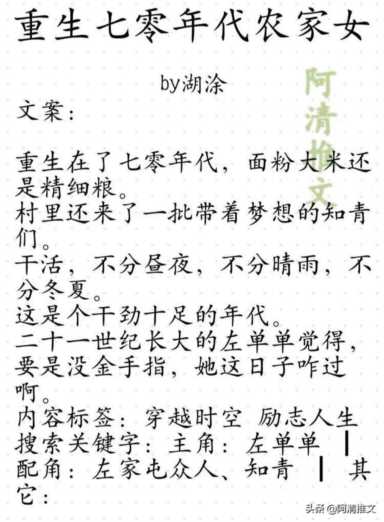 重生七零年代农家女
by湖涂
阿清推文
文案：
重生在了七零年代，面粉大米还
是精细粮。
村里还来了一批带着梦想的知青
们。
干活，不分昼夜，不分晴雨，不
分冬夏。
这是个干劲十足的年代。
二十一世纪长大的左单单觉得，
要是没金手指，她这日子咋过
啊。
内容标签：穿越时空 励志人生
搜索关键字：主角：左单单 ┃
配角：左家屯众人、知青 ┃ 其
它：
头条 @阿清推文